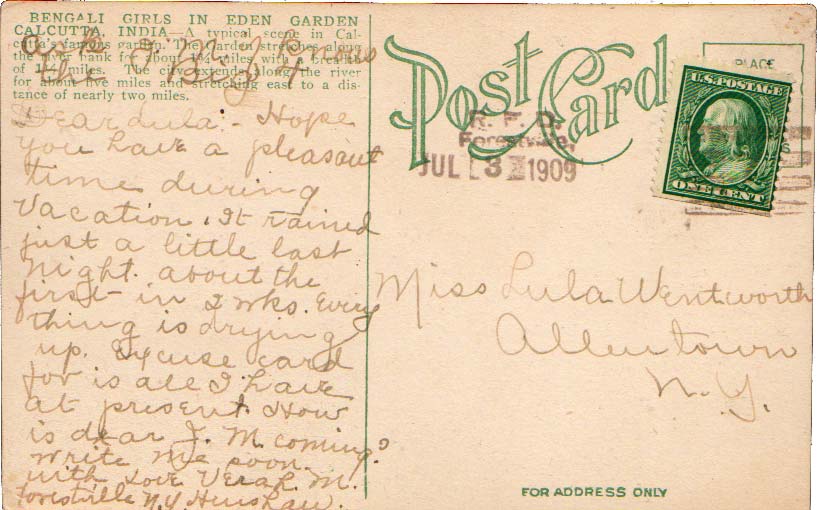 BENGALI GIRLS IN EDEN GARDEN
CALCUTTA, INDIA—A typical scene in Cal-
cutta's famous garden. The garden stretches along
the river bank for about 1¼ miles, with a breadth
of 1¼ miles. The city extends along the river
for about five miles and stretching east to a dis-
tance of nearly two miles.
Dear Lula:- Hope
you have a pleasant
time during
Vacation. It rained
just a little last
night. about the
first in 2 wks. Every
thing is drying
up. Excuse card
for is all I have
at present. How
is dear J. M. coming?
Write me soon.
with Love Verah. M.
Forestville N.Y. Henshaw.
Post Card
PLACE
U.S. POSTAGE
ONE CENT
R. F. D.
Forestville,
JUL 3 1909
Miss Lula Wentworth
Allentown
N.Y.
FOR ADDRESS ONLY